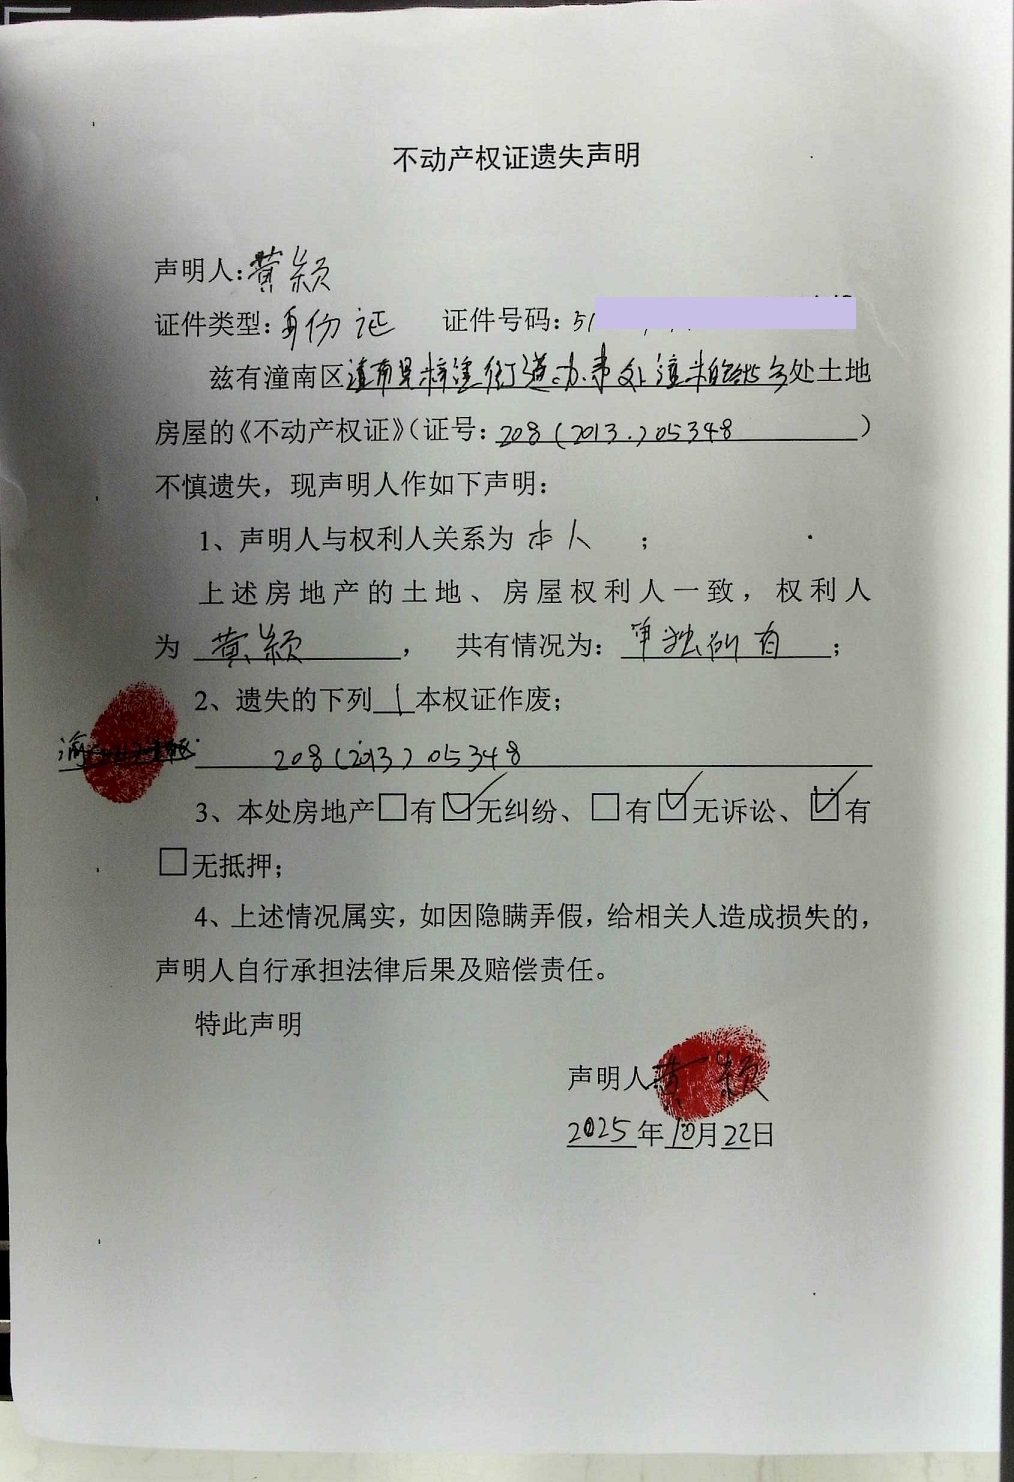 不动产权证遗失声明
声明人:黄颖
证件类型:身份证 证件号码:51
兹有潼南区潼南县梓潼街道办事处处土地
房屋的《不动产权证》(证号:208(2013.)05348)
不慎遗失，现声明人作如下声明:
1、声明人与权利人关系为 本人 ;
上述房地产的土地、房屋权利人一致，权利人
为 黄颖 ， 共有情况为: 单独所有 ;
2、遗失的下列1本权证作废;
渝
208(2013)05348
3、本处房地产□有☑无纠纷、□有☑无诉讼、☑有
□无抵押;
4、上述情况属实，如因隐瞒弄假，给相关人造成损失的，
声明人自行承担法律后果及赔偿责任。
特此声明
声明人黄颖
2025年10月22日